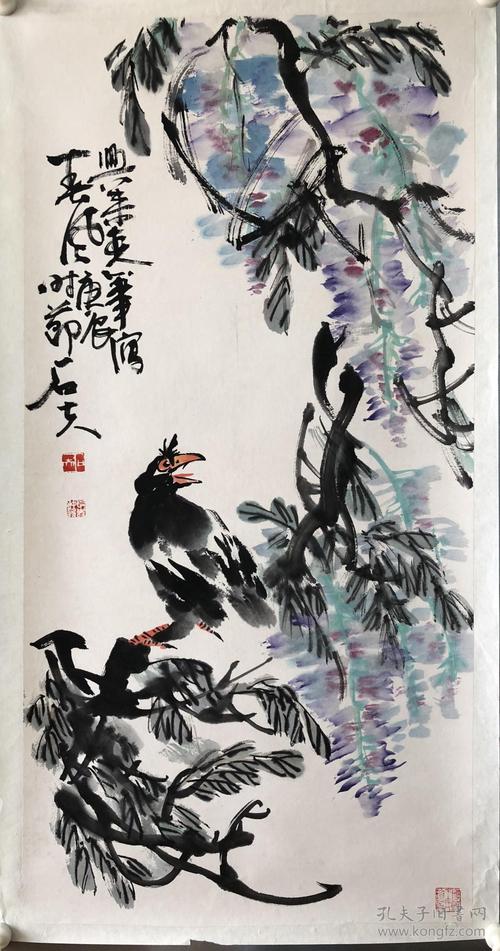 興來走筆写
春風时節
庚辰
石夫
孔夫子旧書网
www.kongfz.com